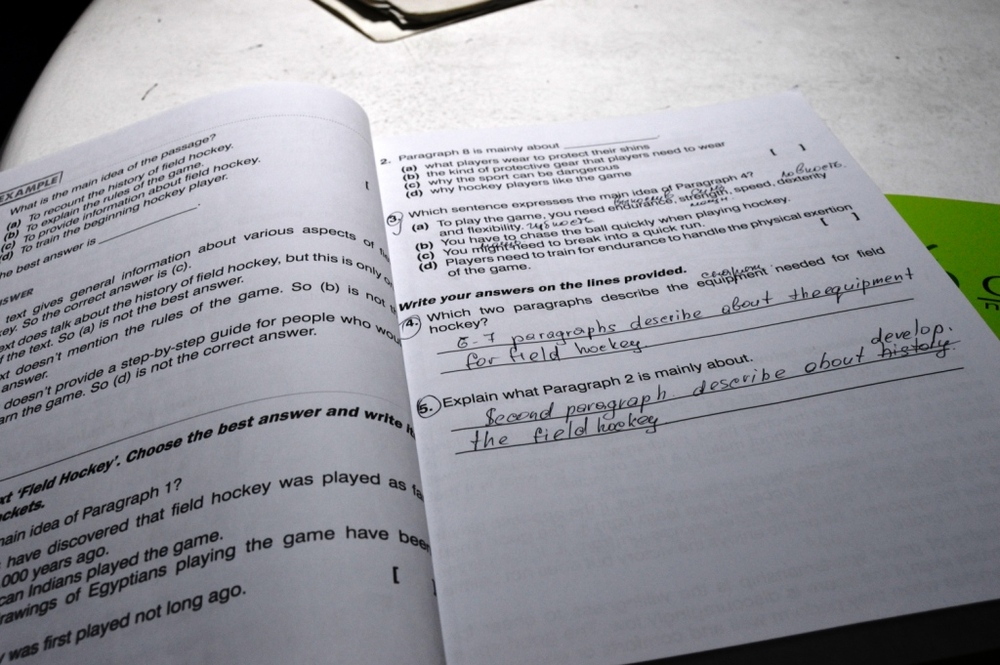 EXAMPLE
What is the main idea of the passage?
(a) To recount the history of field hockey.
(b) To explain the rules of the game.
(c) To provide information about field hockey.
(d) To train the beginning hockey player.
[
he best answer is
SWER
text gives general information about various aspects of fi
ey. So the correct answer is (c).
ext does talk about the history of field hockey, but this is only
f the text. So (a) is not the best answer.
xt doesn't mention the rules of the game. So (b) is not
answer.
doesn't provide a step-by-step guide for people who wou
arn the game. So (d) is not the correct answer.
xt 'Field Hockey'. Choose the best answer and write it
ckets.
ain idea of Paragraph 1?
have discovered that field hockey was played as fa
000 years ago.
can Indians played the game.
rawings of Egyptians playing the game have been
[ ]
y was first played not long ago.
2. Paragraph 8 is mainly about
(a) what players wear to protect their shins
(b) the kind of protective gear that players need to wear
(c) why the sport can be dangerous
(d) why hockey players like the game
[ ]
3. Which sentence expresses the main idea of Paragraph 4?
(a) To play the game, you need endurance, strength, speed, dexterity
and flexibility.
(b) You have to chase the ball quickly when playing hockey.
(c) You might need to break into a quick run.
(d) Players need to train for endurance to handle the physical exertion
of the game.
[ ]
Write your answers on the lines provided.
4. Which two paragraphs describe the equipment needed for field
hockey?
6-7 paragraphs describe about the equipment
for field hockey
5. Explain what Paragraph 2 is mainly about.
develop.
Second paragraph describe about history.
the field hockey